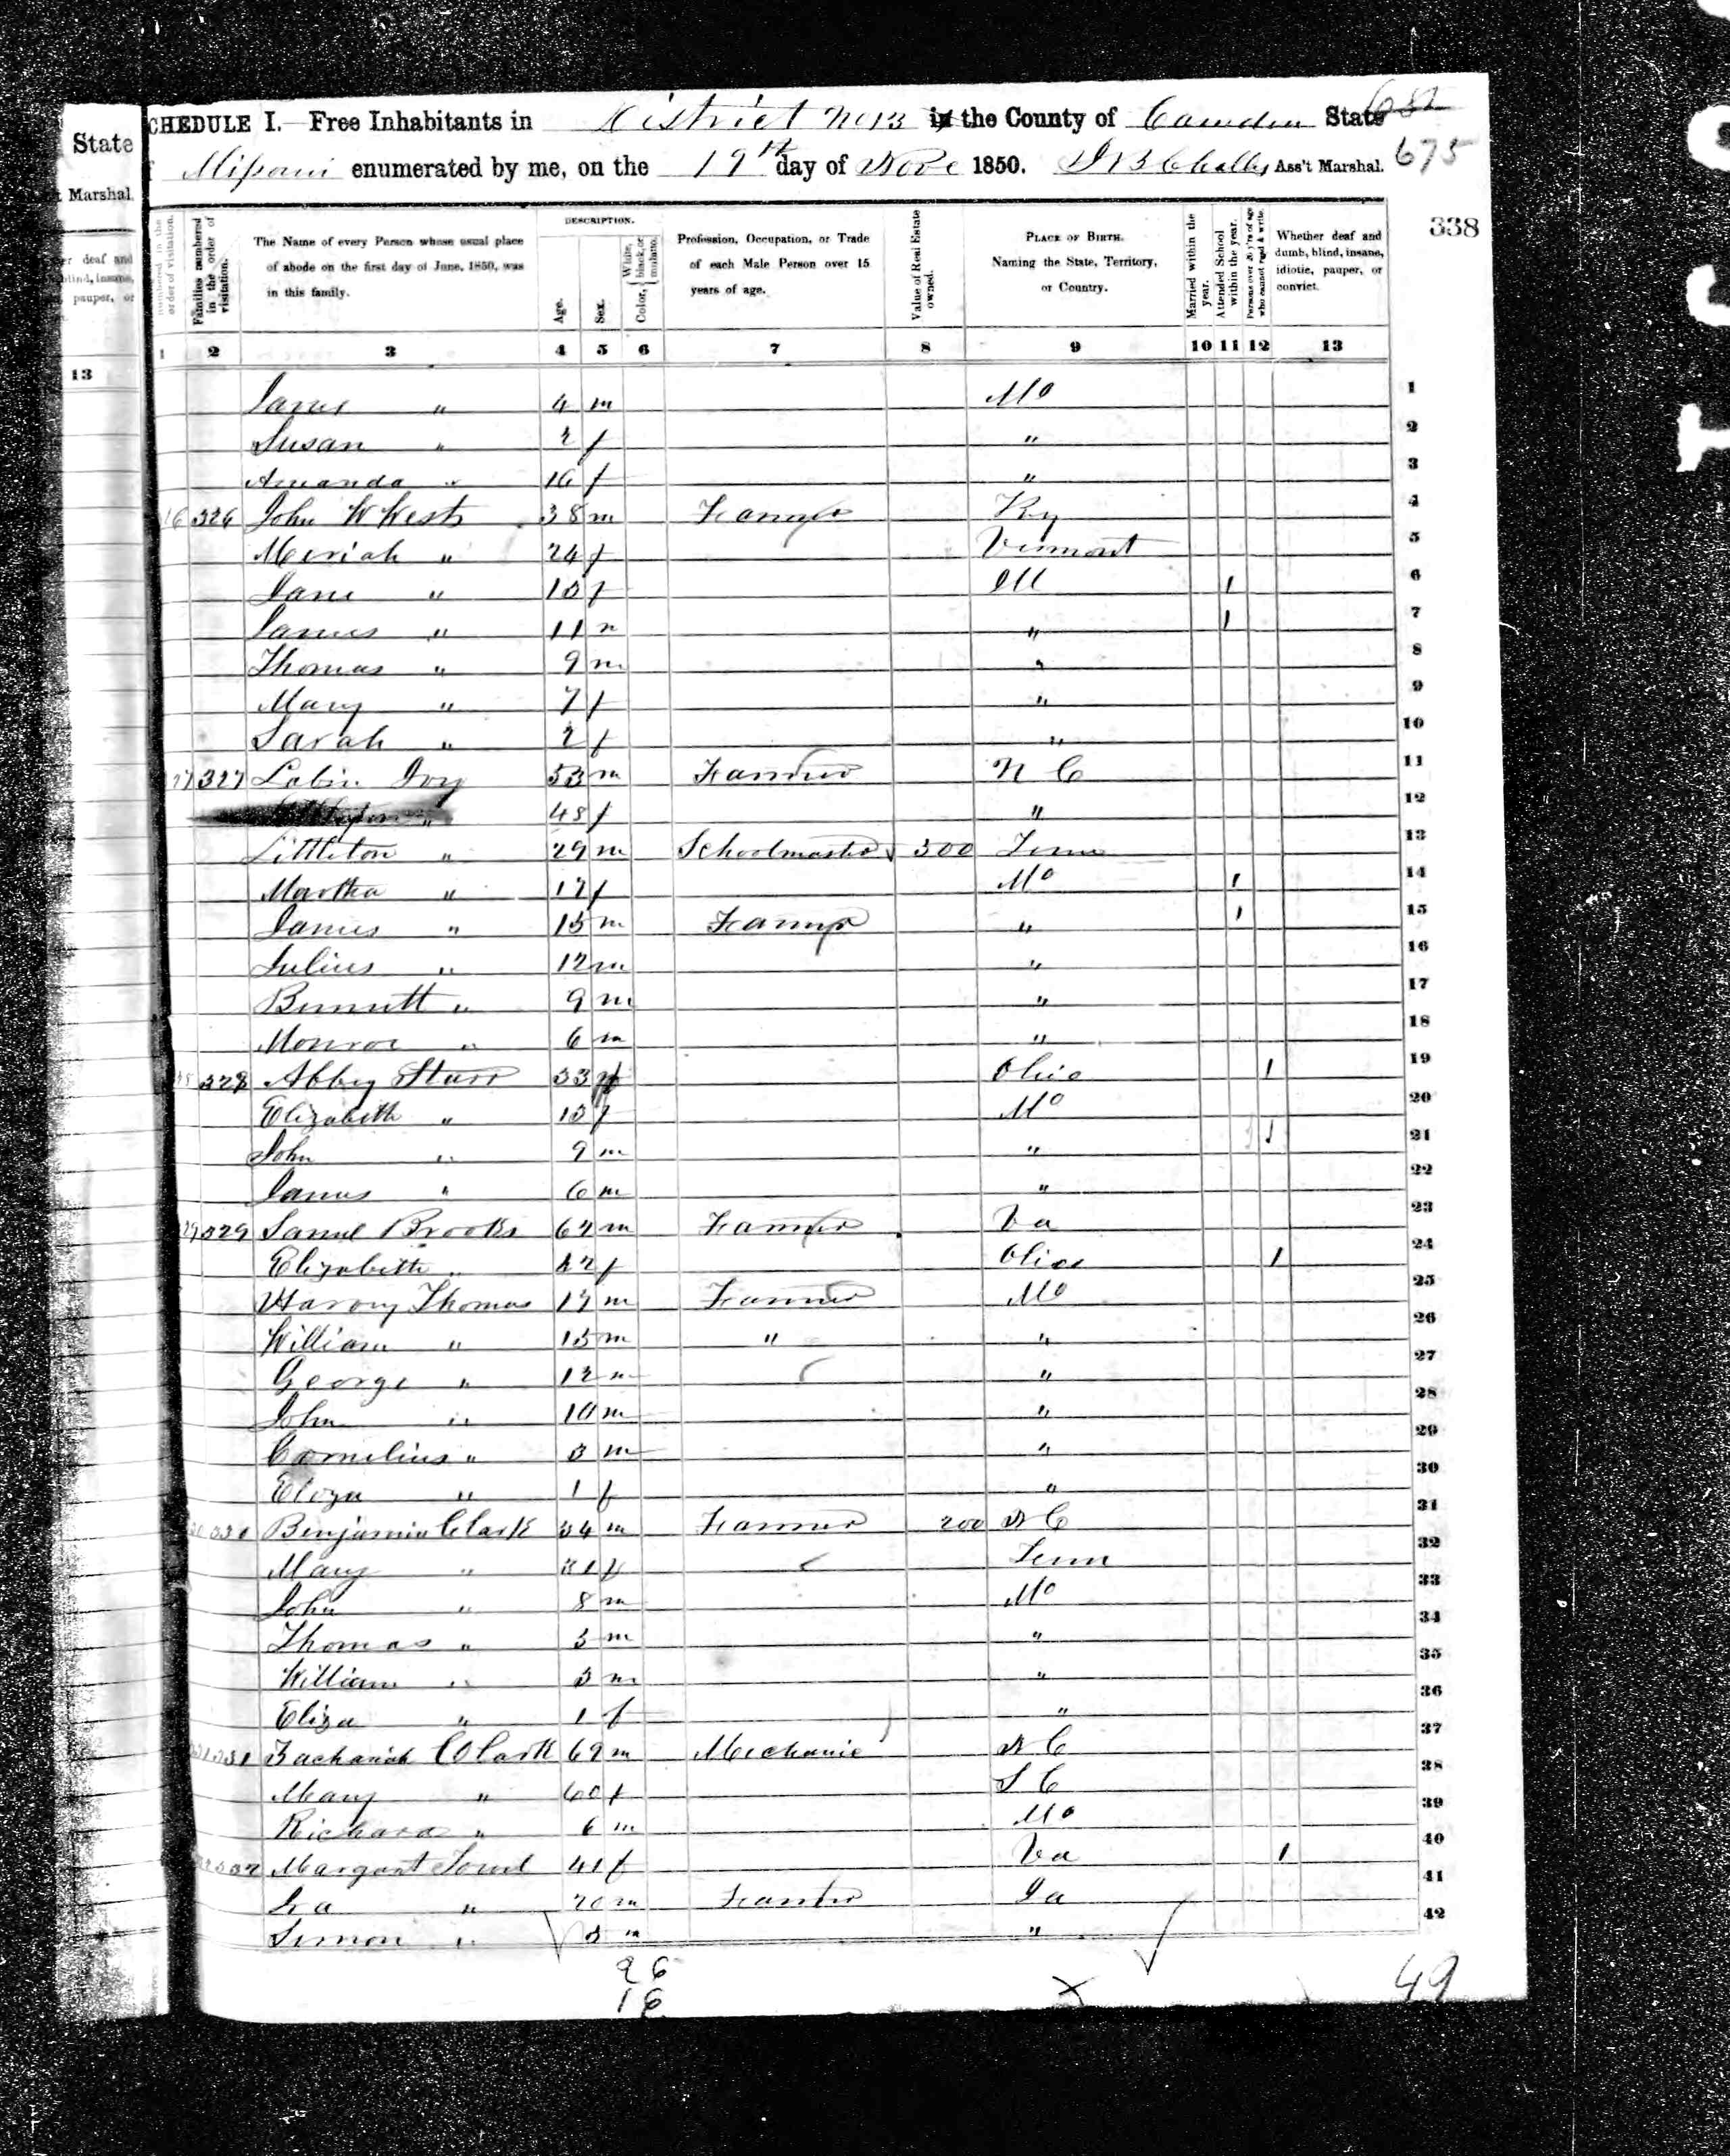 State
Marshal.
13
SCHEDULE I. Free Inhabitants in District No 13 in the County of Camden State
Missouri enumerated by me, on the 19th day of Nove 1850. Ass't Marshal.
675
338
DESCRIPTION.
The Name of every Person whose usual place of abode on the first day of June, 1850, was in this family.
Families numbered in the order of visitation.
Age.
Sex.
Color, White, black, or mulatto.
Profession, Occupation, or Trade of each Male Person over 15 years of age.
Value of Real Estate owned.
PLACE OF BIRTH. Naming the State, Territory, or Country.
Married within the year.
Attended School within the year.
Persons over 20 y'rs of age who cannot read & write.
Whether deaf and dumb, blind, insane, idiotic, pauper, or convict.
1 2 3 4 5 6 7 8 9 10 11 12 13
James " 4 m Mo 1
Susan " 2 f " 2
Amanda " 16 f " 3
326 John W West 38 m Farmer Ky 4
Meriah " 24 f Vermont 5
Jane " 13 f Ill 1 6
James " 11 m " 1 7
Thomas " 9 m " 8
Mary " 7 f " 9
Sarah " 2 f " 10
327 Labin Ivy 53 m Farmer N C 11
" 48 f " 12
Littleton " 29 m Schoolmaster 300 Tenn 13
Martha " 17 f Mo 1 14
James " 15 m Farmer " 1 15
Julius " 12 m " 16
Bennett " 9 m " 17
Monroe " 6 m " 18
328 Abby Starr 33 f Ohio 1 19
Elizabeth " 13 f Mo 20
John " 9 m " 1 21
James " 6 m " 22
329 Samuel Brooks 67 m Farmer Va 23
Elizabeth " 42 f Ohio 1 24
Harvy Thomas 17 m Farmer Mo 25
William " 15 m " " 26
George " 12 m " 27
John " 10 m " 28
Cornelius " 3 m " 29
Eloza " 1 f " 30
330 Benjamin Clark 34 m Farmer 200 N C 31
Mary " 31 f Tenn 32
John " 8 m Mo 33
Thomas " 5 m " 34
William " 3 m " 35
Eliza " 1 f " 36
331 Zachariah Clark 69 m Mechanic N C 37
Mary " 60 f S C 38
Richard " 6 m Mo 39
332 Margaret 41 f Va 1 40
Ira " 20 m Farmer Ia 41
Simon " m " 42
26
16
49